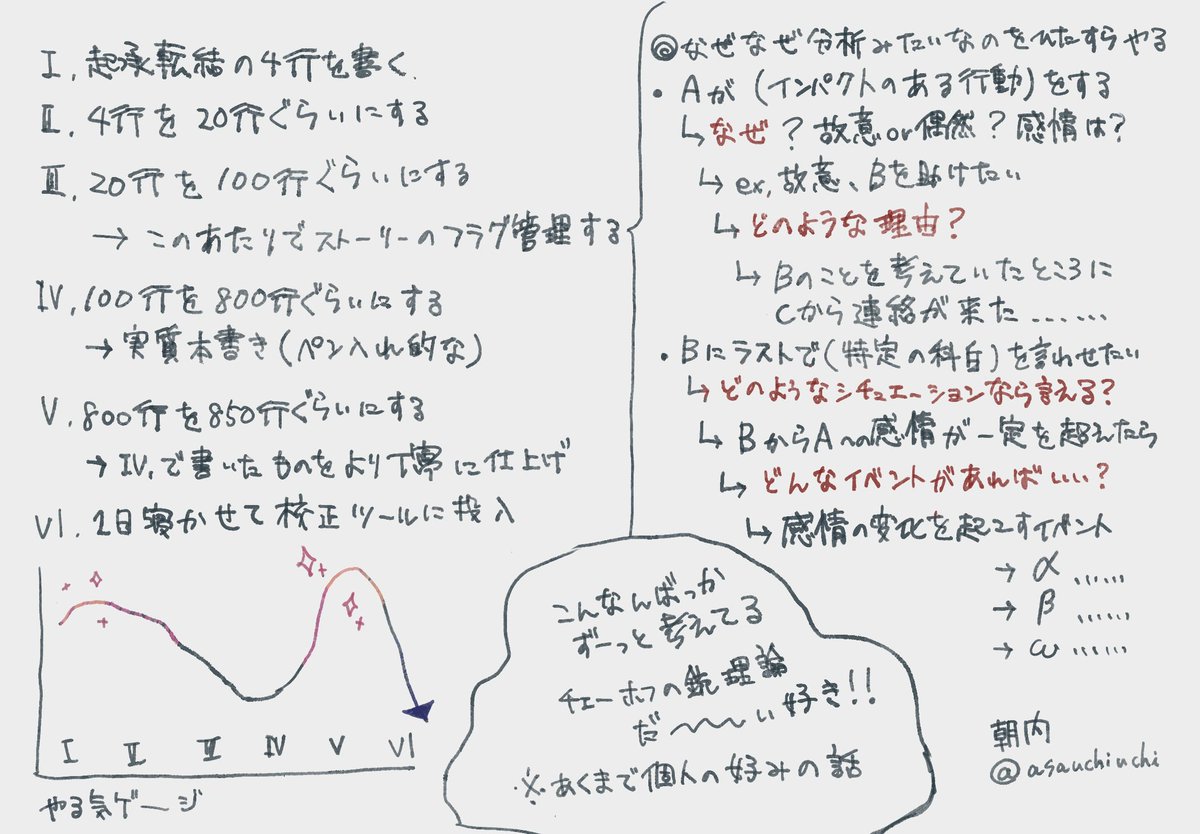 I. 起承転結の4行を書く.
II. 4行を20行ぐらいにする
III. 20行を100行ぐらいにする
→ このあたりでストーリーのフラグ管理する
IV. 100行を800行ぐらいにする
→ 実質本書き(ペン入れ的な)
V. 800行を850行ぐらいにする
→ IV.で書いたものをより丁寧に仕上げ
VI. 1日寝かせて校正ツールに投入
I II III IV V VI
やる気ゲージ
◎なぜなぜ分析みたいなのをひたすらやる
・Aが(インパクトのある行動)をする
↳なぜ?故意or偶然?感情は?
↳ex,故意、Bを助けたい
↳どのような理由?
↳Bのことを考えていたところに
Cから連絡が来た……
・Bにラストで(特定の科白)を言わせたい
↳どのようなシチュエーションなら言える?
↳BからAへの感情が一定を超えたら
↳どんなイベントがあればいい?
↳感情の変化を起こすイベント
→ α ……
→ β ……
→ ω ……
こんなんばっか
ずーっと考えてる
チェーホフの銃理論
だ〜〜〜い好き!!
※あくまで個人の好みの話
朝内
@asauchiuchi